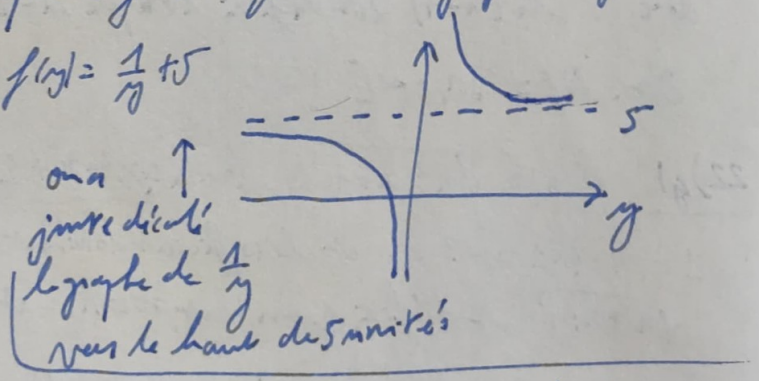 f(y) = 1/y + 5
5
on a
juste décalé
y
le graphe de 1/y
vers le haut de 5 unités